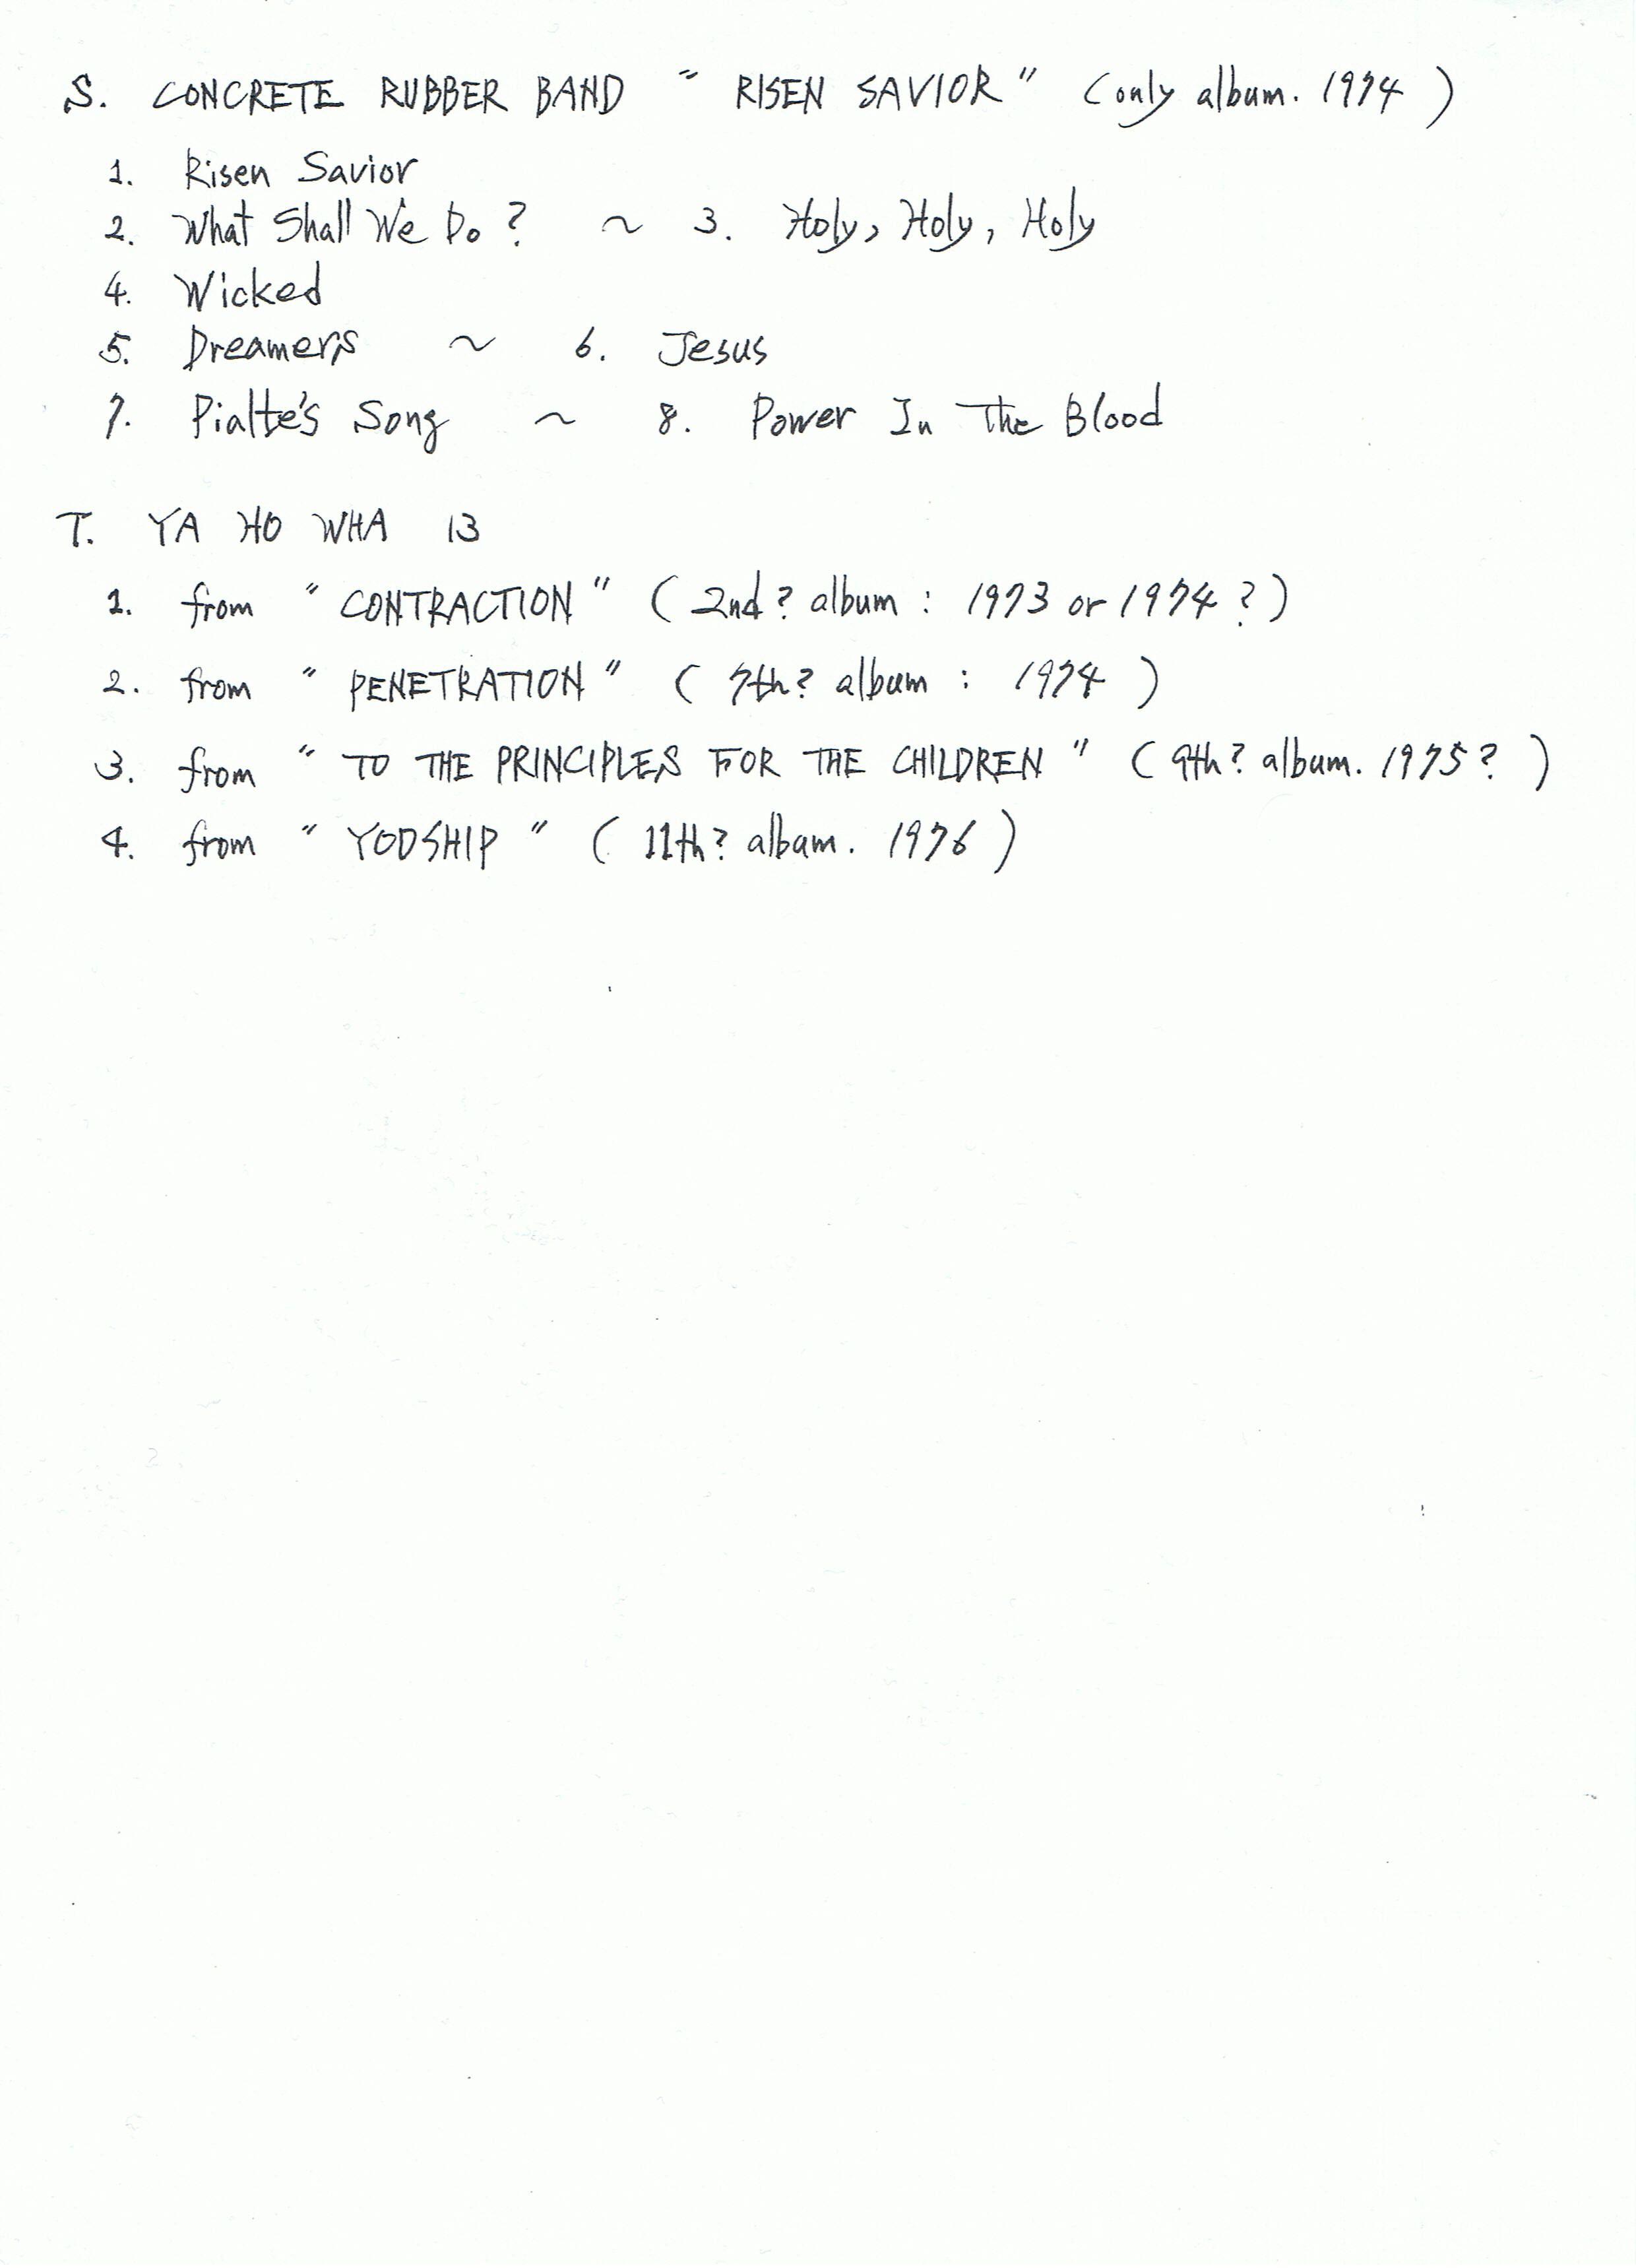 S. CONCRETE RUBBER BAND " RISEN SAVIOR " (only album. 1974)
1. Risen Savior
2. What Shall We Do? ~ 3. Holy, Holy, Holy
4. Wicked
5. Dreamers ~ 6. Jesus
7. Pialte's Song ~ 8. Power In The Blood
T. YA HO WHA 13
1. from " CONTRACTION " (2nd? album : 1973 or 1974?)
2. from " PENETRATION " (7th? album : 1974)
3. from " TO THE PRINCIPLES FOR THE CHILDREN " (9th? album. 1975?)
4. from " YODSHIP " (11th? album. 1976)